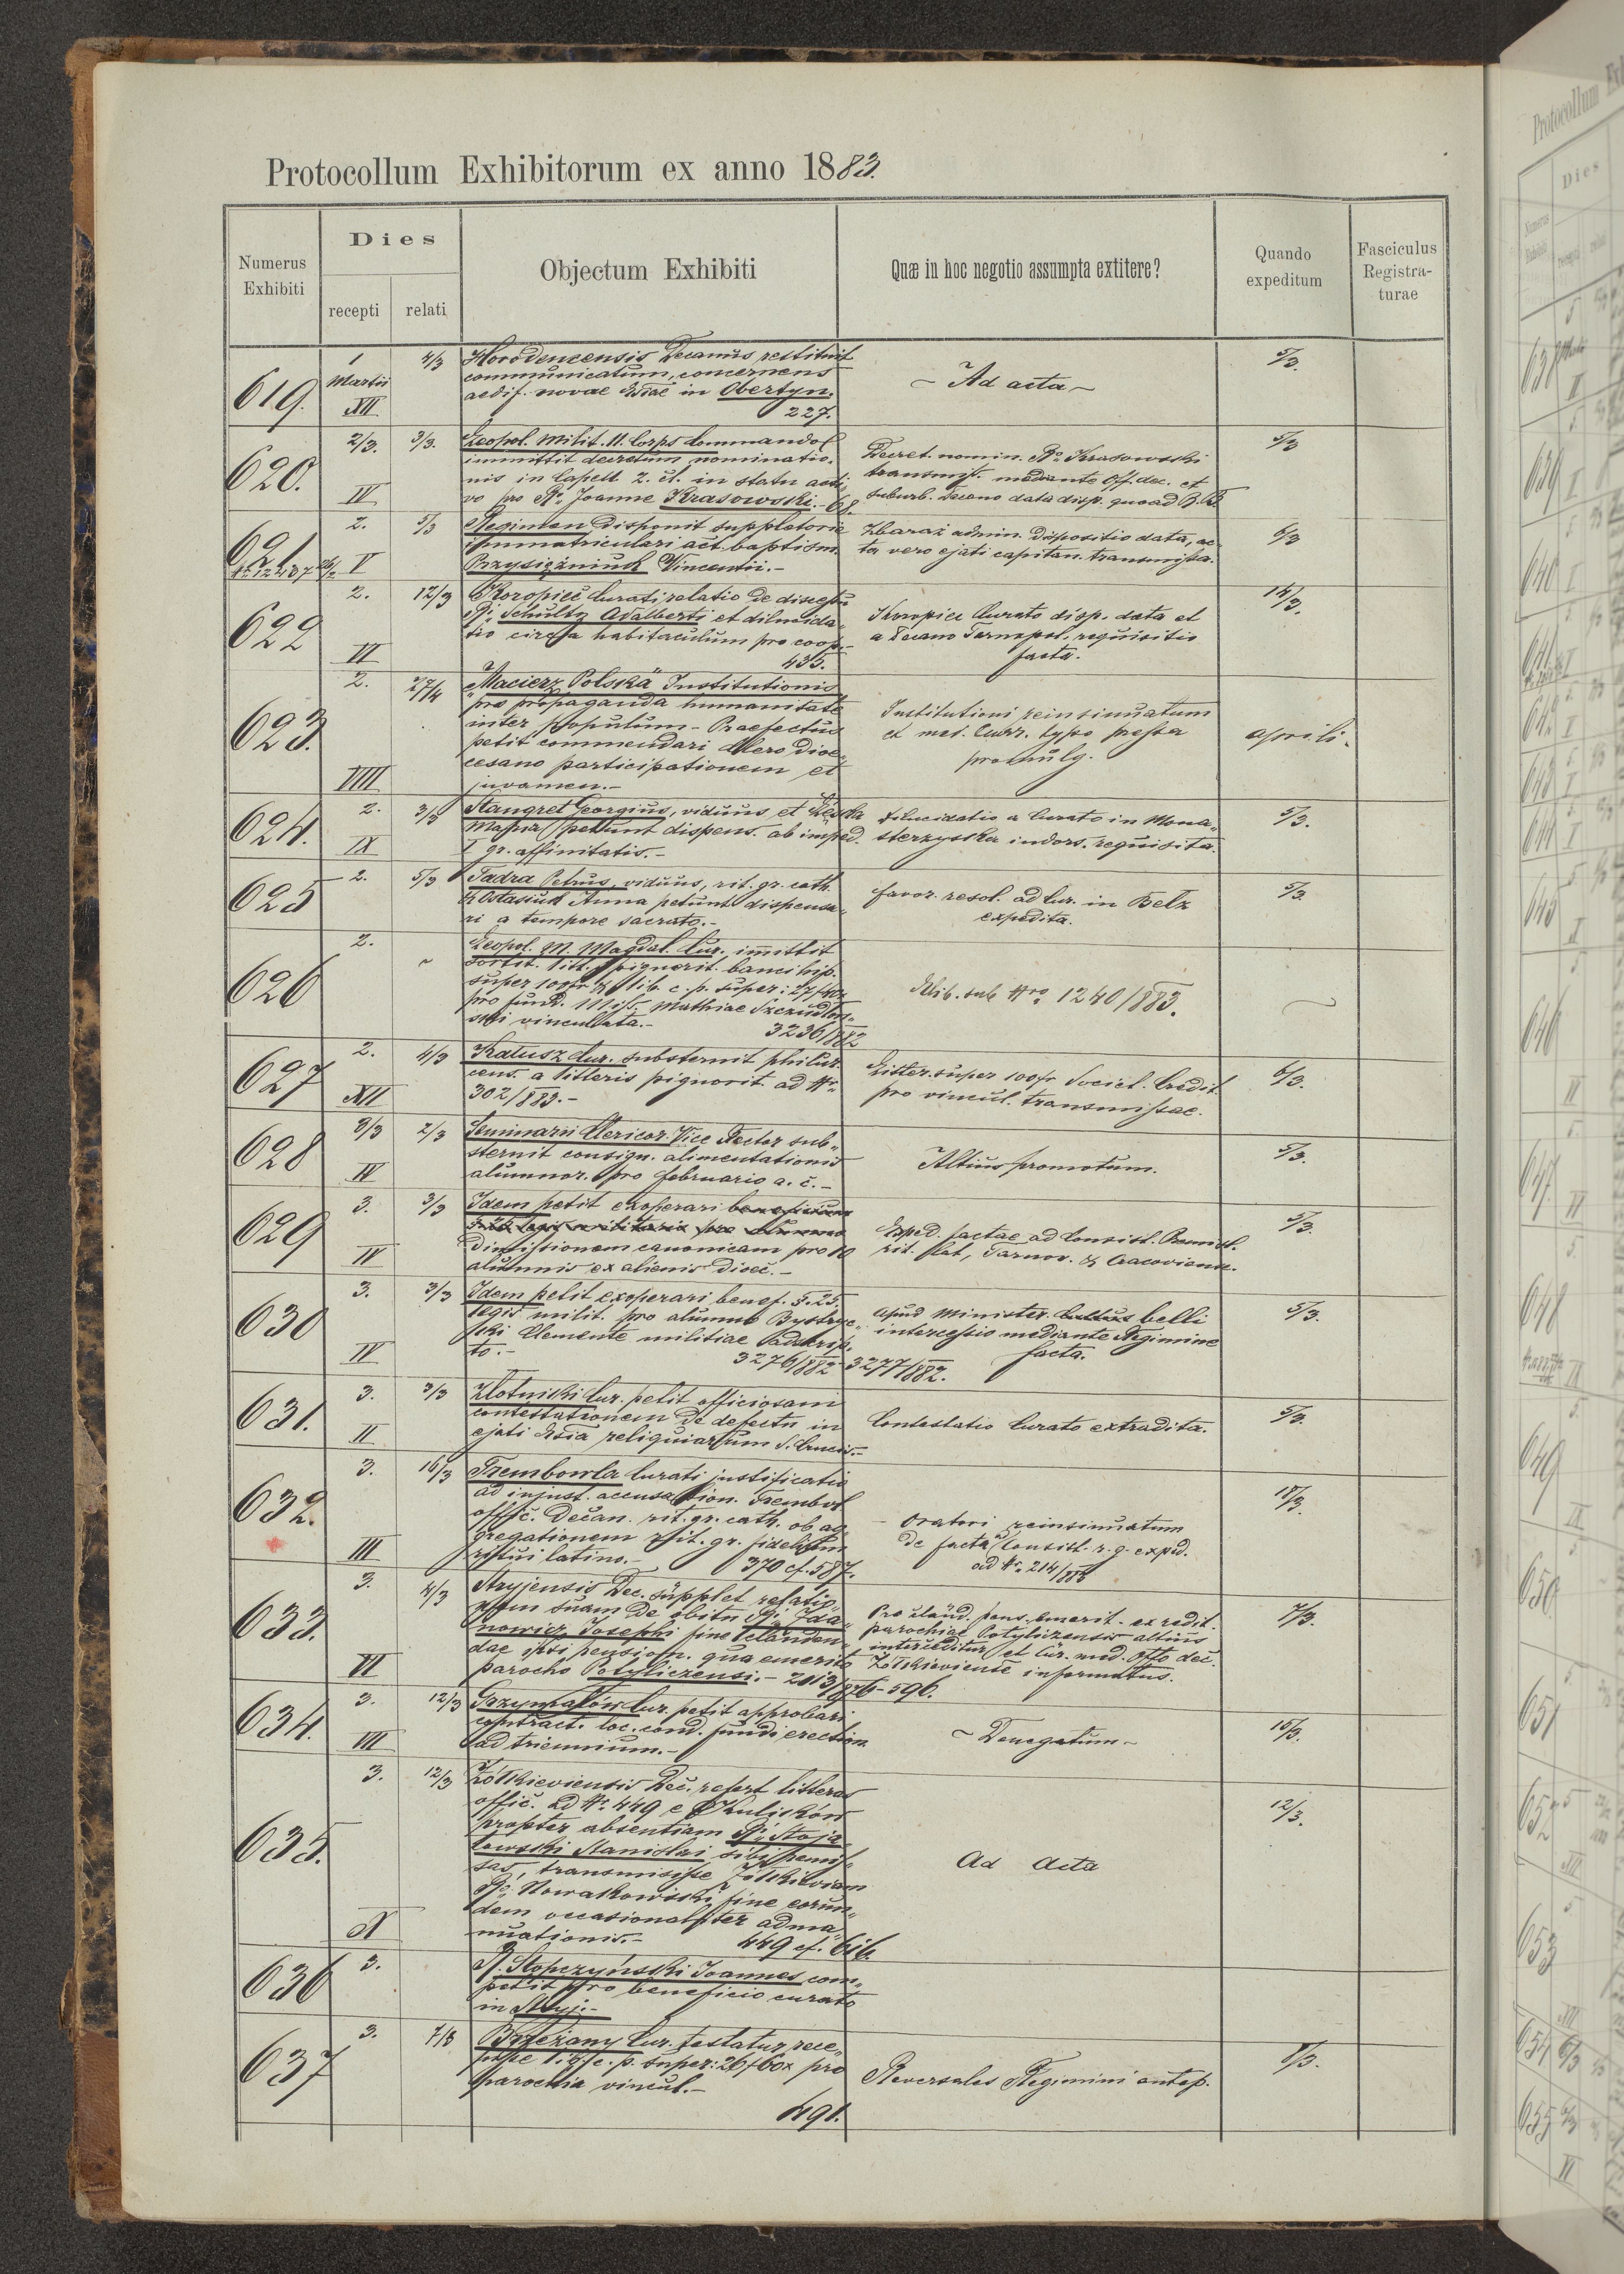 Protocollum Exhibitorum ex anno 1883.
Numerus Exhibiti
Dies
recepti
relati
Objectum Exhibiti
Quæ in hoc negotio assumpta extitere?
Quando expeditum
Fasciculus Registra-
turae
619.
1 Martii
XII
4/3
Horodencensis Decanus restituit
communicatum, concernens
aedif. novae Ecclae in Obertyn.
227.
~ Ad acta ~
5/3.
620.
2/3.
IV
3/3.
Leopol. Milit. 11. Corps Commando
immittit decretum nominatio-
nis in Capell. 2. cl. in statu acti-
vo pro Ro. Joanne Krasowski. - 68.
Decret. nomin. Ro. Krasowski
transmis. mediante Off. dec. et
suburb. Decano data disp. quoad
5/3
621
2.
V
5/3
Regimen disponit suppletorie
immatriculari act. baptism.
Przysiężniuk Vincentii. -
Zbaraż admin. dispositio data, ac-
ta vero ejati capitan. transmissa.
6/3
622
2.
VI
12/3
Koropiec Curati relatio de discessu
Ri. Schultz Adalberti et dilucida-
tio circa habitaculum pro coop. -
435.
Koropiec Curato disp. data et
a Decano Tarnopol. requisitio
facta.
14/3.
623.
2.
VIII
27/4
"Macierz Polska" Institutionis
pro propaganda humanitate
inter populum - Praefectus
petit commendari Clero dioe-
cesano participationem et
juvamen. -
Institutioni reinsinuatum
et med. Curr. typo pressa
promulg.
aprili.
624.
2.
IX
3/3
Stangret Georgius, viduus, et
Maria petunt dispens. ab imped.
I gr. affinitatis. -
Dilucidatio a Curato in Mona-
sterzyska indors. requisita.
5/3.
625
2.
5/3
Sadra Petrus, viduus, rit. gr. cath.
& Ostasiuk Anna petunt dispensa-
ri a tempore sacrato. -
favor. resol. ad Cur. in Bełz
expedita.
5/3.
626
2.
~
Leopol. M. Magdal. Cur. immittit
sortit. litt. pignorit. banci hip.
super 100 fr. & lib. c. p. super: 27 f 40x
pro fund. Miss. Mathiae
ski vinculata. -
3236/882
Exhib. sub Nro 1240/883.
627
2.
XII
4/3
Kałusz Cur. substernit
cens. a litteris pignorit. ad Nr.
302/883. -
Litter. super 100 fr Societ. Credit.
pro vincul. transmissae.
6/3.
628
3/3
IV
2/3
Seminarii Clericor. Vice Rector sub-
sternit consign. alimentationis
alumnor. pro februario a. c. -
Altius promotum.
5/3.
629
3.
IV
3/3
Idem petit exoperari beneficium
dimissionem canonicam pro 10
alumnis ex alienis dioec. -
Exped. factae ad Consist. Premisl.
rit. lat, Tarnov. & Cracoviense.
5/3.
630
3.
IV
3/3
Idem petit exoperari benef. §. 25.
legis milit. pro alumno Bystrze-
ski Clemente militiae adscrip-
to. -
3276/882 - 3277/882.
apud Minister. Cultus belli
intercessio mediante Regimine
facta.
5/3.
631.
3.
II
3/3
Złotniki Cur. petit officiosam
contestationem de defectu in
ejati Ecclesia reliquiarum S. Crucis. -
Contestatio Curato extradita.
5/3.
632.
3.
III
16/3
Trembowla Curati justificatio
ad injust. accusation. Trembov.
offic. Decan. rit. gr. cath. ob ag-
gregationem rit. gr. fidelium
ritui latino. -
370 cf. 587.
- Oratori reinsinuatum
de facta ad Consist. r. g. exped.
ad Nr. 214/883
18/3.
633.
3.
VI
4/3
Stryjensis Dec. supplet relatio-
nem suam de obitu Ri. Zda-
nowicz Josephi fine
dae ipsi pension. qua emerito
parocho Potyliczensi. - 2013/876 - 596.
Pro claud. pens. emerit. ex redit.
parochiae Potylizensis altius
interceditur et Cur. med. Offo dec.
Żółkieviense informatus.
7/3.
634.
3.
VII
12/3
Grzymałów Cur. petit approbari
contract. loc. cond. fundi erection.
ad triennium. -
~ Denegatum ~
15/3.
635.
3.
X
12/3
Żółkieviensis Dec. refert litteras
offic. ad Nr. 449 e Kulików
propter absentiam Ri. Stoja-
łowski Stanislai sibi remis-
sas, transmisisse Żółkieviam
Ro. Nowakowski fine eorun-
dem occasionaliter adma-
nuationis. -
449 cf. 616.
Ad Acta
12/3.
636
3.
R. Stopczyński Joannes com-
petit pro beneficio curato
in Stryj. -
637
3.
7/3
Brzeżany Cur. testatur rece-
pisse lib. c. p. super: 26 f 60x pro
parochia vincul. -
491.
Reversales Regimini antep.
8/3.